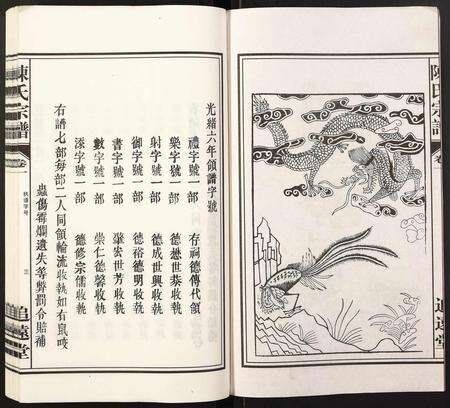 陳氏宗譜
卷一
追遠堂
光緒六年領譜字號
禮字號一部 存祠德傳代領
樂字號一部 德懋世泰收執
射字號一部 德成世興收執
御字號一部 德裕德明收執
書字號一部 肇宏世芳收執
數字號一部 崇仁德馨收執
添字號一部 德修宗儒收執
右譜七部每部二人同領輪流收執如有鼠咬
蟲傷霉爛遺失等弊罰令賠補
陳氏宗譜
卷一
領譜字號
三
追遠堂